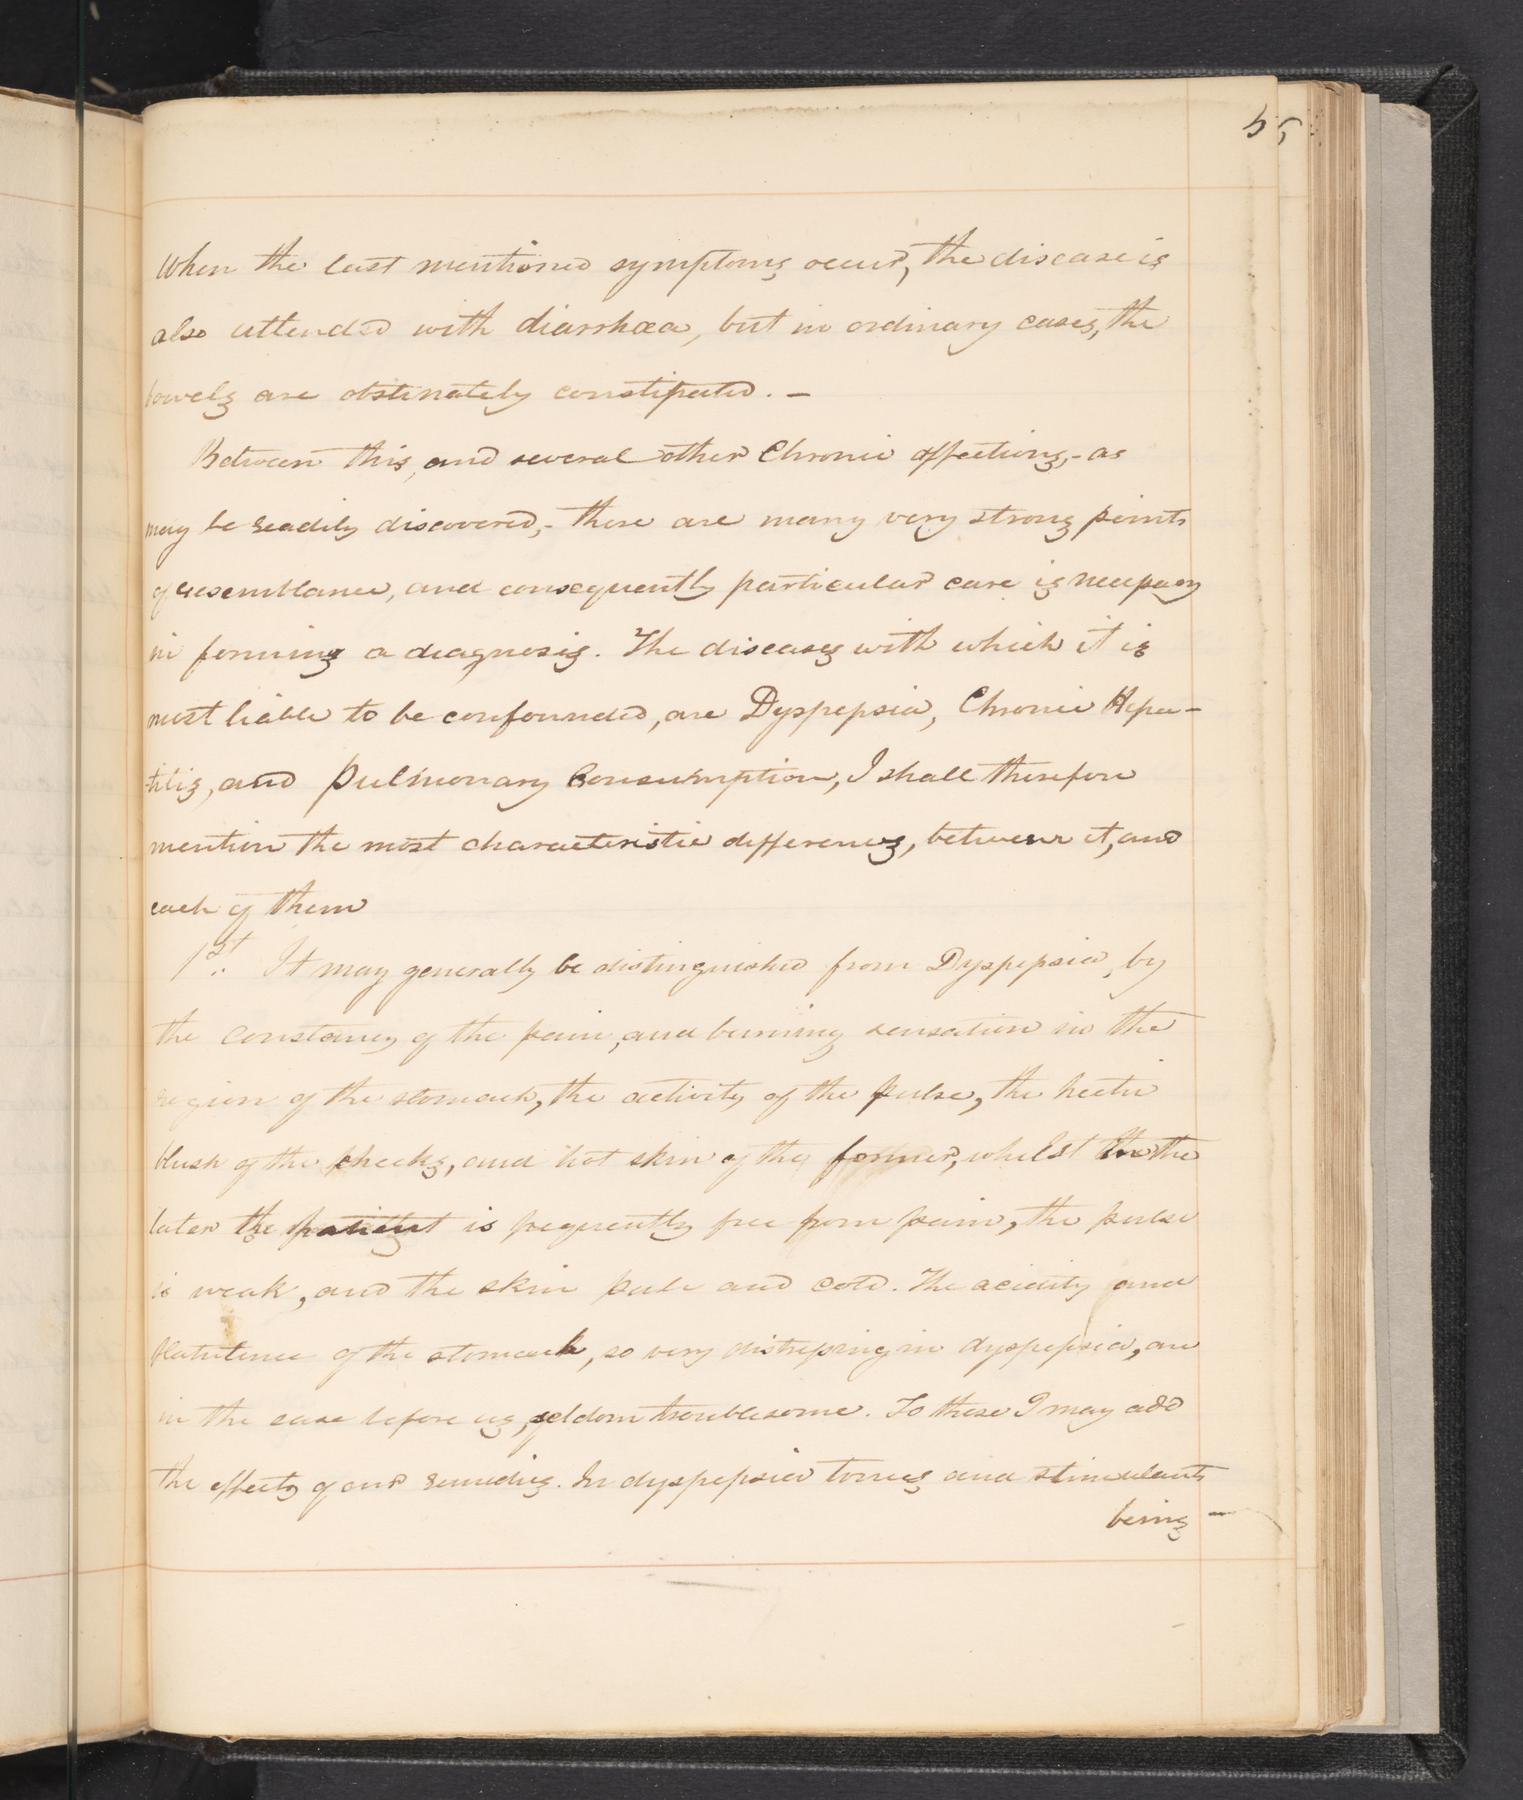 55
When the last mentioned symptoms occur, the disease is
also attended with diarrhœa, but in ordinary cases, the
bowels are obstinately constipated. —
Between this, and several other Chronic affections, - as
may be readily discovered, - there are many very strong points
of resemblance, and consequently particular care is necessary
in forming a diagnosis. The diseases with which it is
most liable to be confounded, are Dyspepsia, Chronic Hepa-
-titis, and Pulmonary Consumption, I shall therefore
mention the most characteristic differences, between it, and
each of them
1st. It may generally be distinguished from Dyspepsia, by
the constancy of the pain, and burning sensation in the
region of the stomach, the activity of the pulse, the hectic
blush of the cheeks, and hot skin of the former, whilst in the
later the patient is frequently free from pain, the pulse
is weak, and the skin pale and cold. The acidity and
flatulence of the stomach, so very distressing in dyspepsia, are
in the case before us, seldom troublesome. To these I may add
the effects of our remedies. In dyspepsia tonics and stimulants
being —